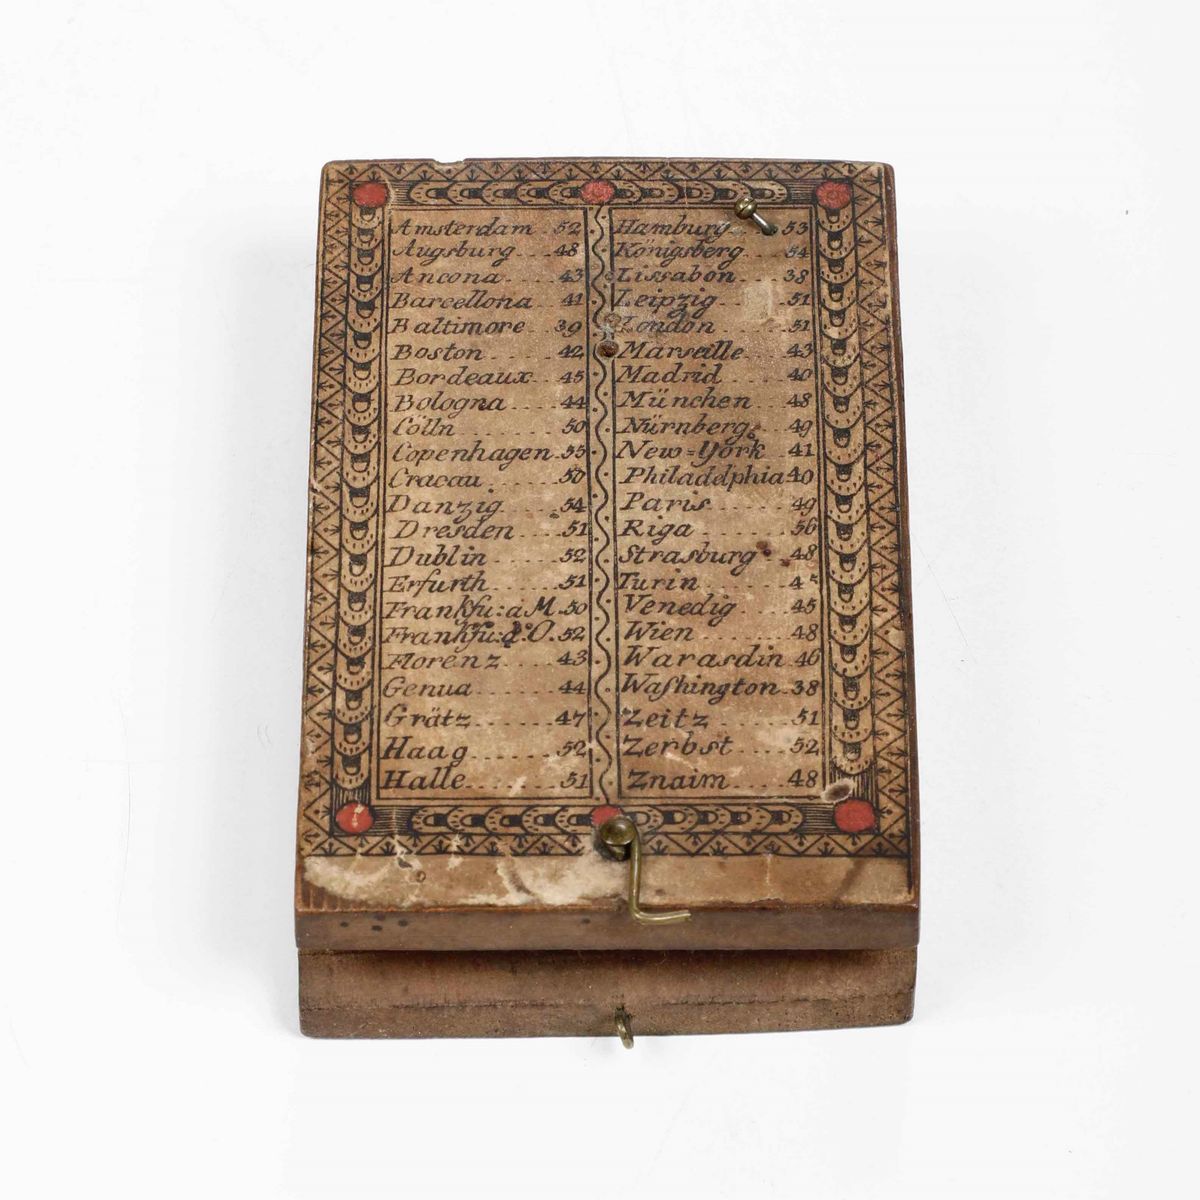 Amsterdam . 52
Augsburg . . 48
Ancona . . . . 43
Barcellona . . 41
Baltimore . . 39
Boston . . . . . 42
Bordeaux . . 45
Bologna . . . . 44
Cölln . . . . . . 50
Copenhagen . 55
Cracau . . . . . 50
Danzig . . . . . 54
Dresden . . . . 51
Dublin . . . . . 52
Erfurth . . . . . 51
Frankfu: a M . 50
Frankfu: d: O . 52
Florenz . . . . 43
Genua . . . . . . 44
Grätz . . . . . . 47
Haag . . . . . . 52
Halle . . . . . . 51
Hamburg . . 53
Königsberg . . 54
Lissabon . . . 38
Leipzig . . . . 51
London . . . . 51
Marseille . . . 43
Madrid . . . . 40
München . . 48
Nürnberg . . 49
New=York . . 41
Philaddphia 40
Paris . . . . . 49
Riga . . . . . . 56
Strasburg . 48
Turin . . . . .
Venedig . . . 45
Wien . . . . . . 48
Warasdin . 46
Waſhington . 38
Zeitz . . . . . 51
Zerbst . . . . 52
Znaim . . . . 48